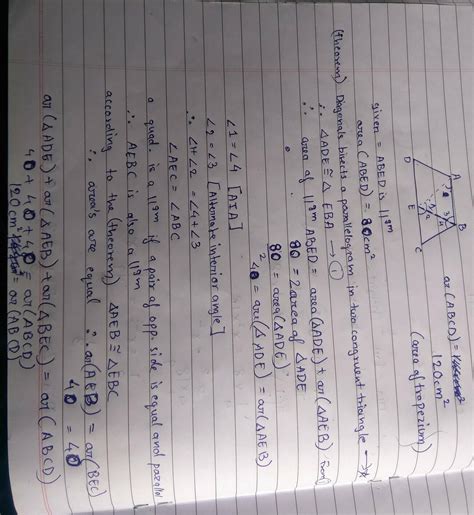 ar(ABCD) =
120cm²
(area of trapezium)
A
B
D
E
C
given = ABED is 11gm
area (ABED) = 80cm²
(theorem) Diagonals bisects a parallelogram in two congruent triangle →*
∴ △ADE ≅ △ EBA → ①
∴ area of 11gm ABED = area(△ADE) + ar(△AEB)
80 = 2area of △ADE
80 = area(△ADE)
2
40 = ar(△ADE) = ar(△AEB)
∠1 = ∠4 [AIA]
∠2 = ∠3 [Alternate interior angle]
∴ ∠1+∠2 = ∠4+∠3
∠AEC = ∠ABC
a quad. is a 11gm if a pair of opp. side is equal and parallel
∴ AEBC is also a 11gm
according to the (theorem) △AEB ≅ △EBC
∴ area's are equal ∴ ar(AEB) = ar(BEC)
40 = 40
ar(△ADE) + ar(△AEB) + ar(△BEC) = ar(ABCD)
40 + 40 + 40 = ar(ABCD)
120cm² = ar(ABCD)